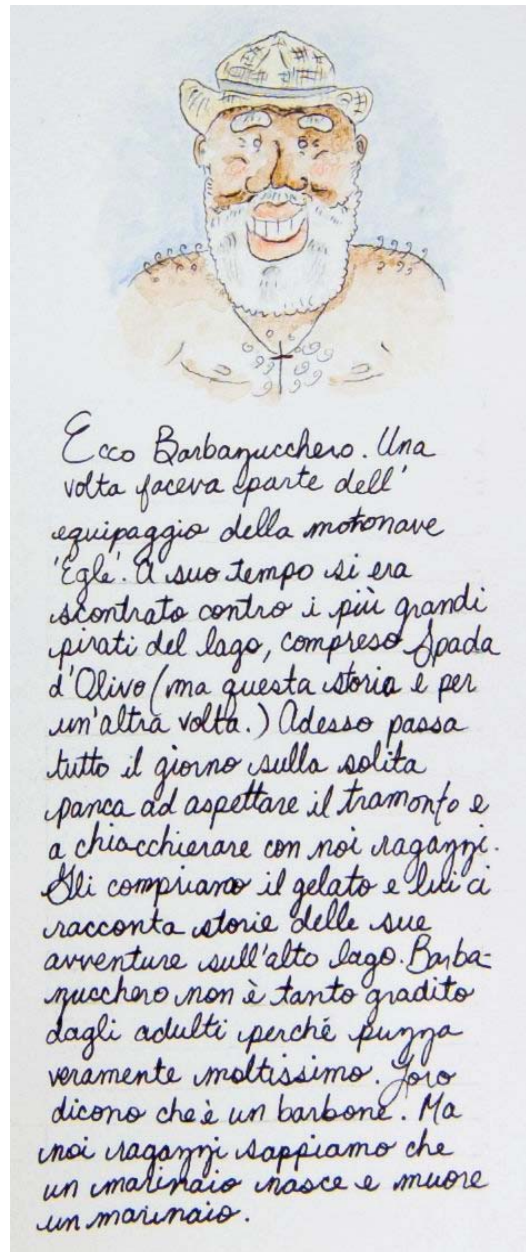 Ecco Barbazucchero. Una
volta faceva parte dell'
equipaggio della motonave
'Egle'. A suo tempo si era
scontrato contro i più grandi
pirati del lago, compreso Spada
d'Olivo (ma questa storia è per
un'altra volta.) Adesso passa
tutto il giorno sulla solita
panca ad aspettare il tramonto e
a chiacchierare con noi ragazzi.
Gli compriamo il gelato e lui ci
racconta storie delle sue
avventure sull'alto lago. Barba-
zucchero non è tanto gradito
dagli adulti perché puzza
veramente moltissimo. Loro
dicono che è un barbone. Ma
noi ragazzi sappiamo che
un marinaio nasce e muore
un marinaio.